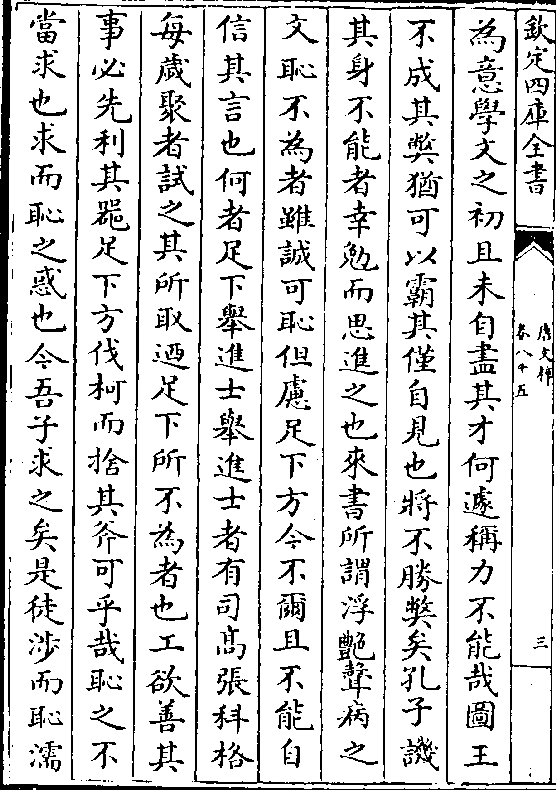 欽定四庫全書
唐文粹
卷八十五
三
為意學文之初且未自盡其才何遽稱力不能哉圖王
不成其弊猶可以霸其僅自見也將不勝弊矣孔子譏
其身不能者幸勉而思進之也來書所謂浮艷聲病之
文恥不為者雖誠可恥但慮足下方今不爾且不能自
信其言也何者足下舉進士舉進士者有司髙張科格
每歲聚者試之其所取廼足下所不為者也工欲善其
事必先利其器足下方伐柯而捨其斧可乎哉恥之不
當求也求而恥之惑也今吾子求之矣是徒涉而恥濡